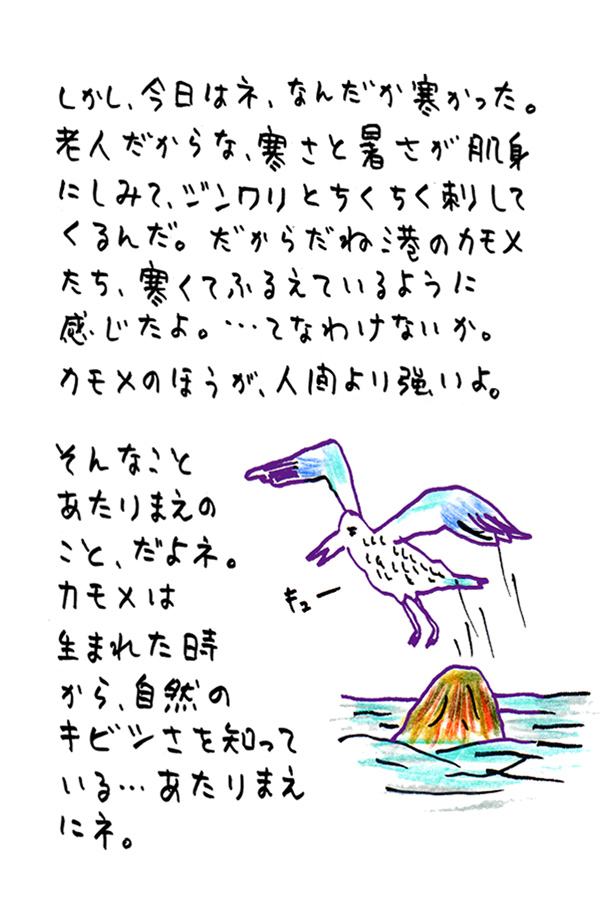 しかし、今日はネ、なんだか寒かった。
老人だからな、寒さと暑さが肌身
にしみて、ジンワリとちくちく刺して
くるんだ。だからだね港のカモメ
たち、寒くてふるえているように
感じたよ。…てなわけないか。
カモメのほうが、人間より強いよ。
そんなこと
あたりまえの
こと、だよネ。
カモメは
生まれた時
から、自然の
キビシさを知って
いる…あたりまえ
にネ。
キュー